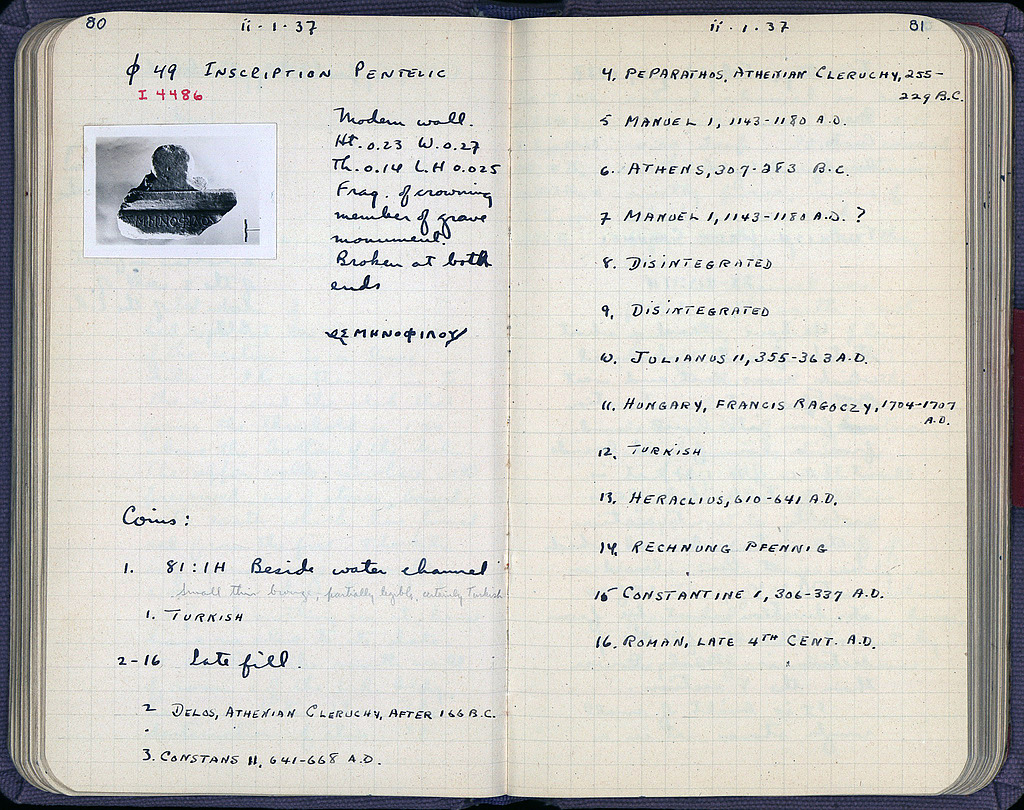 80
ii · 1 · 37
ϕ 49 INSCRIPTION PENTELIC
I 4486
Modern wall.
Ht. 0.23 W. 0.27
Th. 0.14 L.H 0.025
Frag. of crowning
member of grave
monument.
Broken at both
ends
ΜΗΝΟΦΙΛΟΥ
Coins:
1. 81:ΙΗ Beside water channel
small thin bronze, partially legible, certainly Turkish
1. TURKISH
2-16 late fill.
2 DELOS, ATHENIAN CLERUCHY, AFTER 166 B.C.
3. CONSTANS II, 641-668 A.D.
ii · 1 · 37
81
4. PEPARATHOS, ATHENIAN CLERUCHY, 255-
229 B.C.
5 MANUEL I, 1143-1180 A.D.
6. ATHENS, 307-283 B.C.
7 MANUEL I, 1143-1180 A.D. ?
8. DISINTEGRATED
9. DISINTEGRATED
10. JULIANUS II, 355-363 A.D.
11. HUNGARY, FRANCIS RAGOCZY, 1704-1707
A.D.
12. TURKISH
13. HERACLIUS, 610-641 A.D.
14. RECHNUNG PFENNIG
15 CONSTANTINE I, 306-337 A.D.
16. ROMAN, LATE 4TH CENT. A.D.